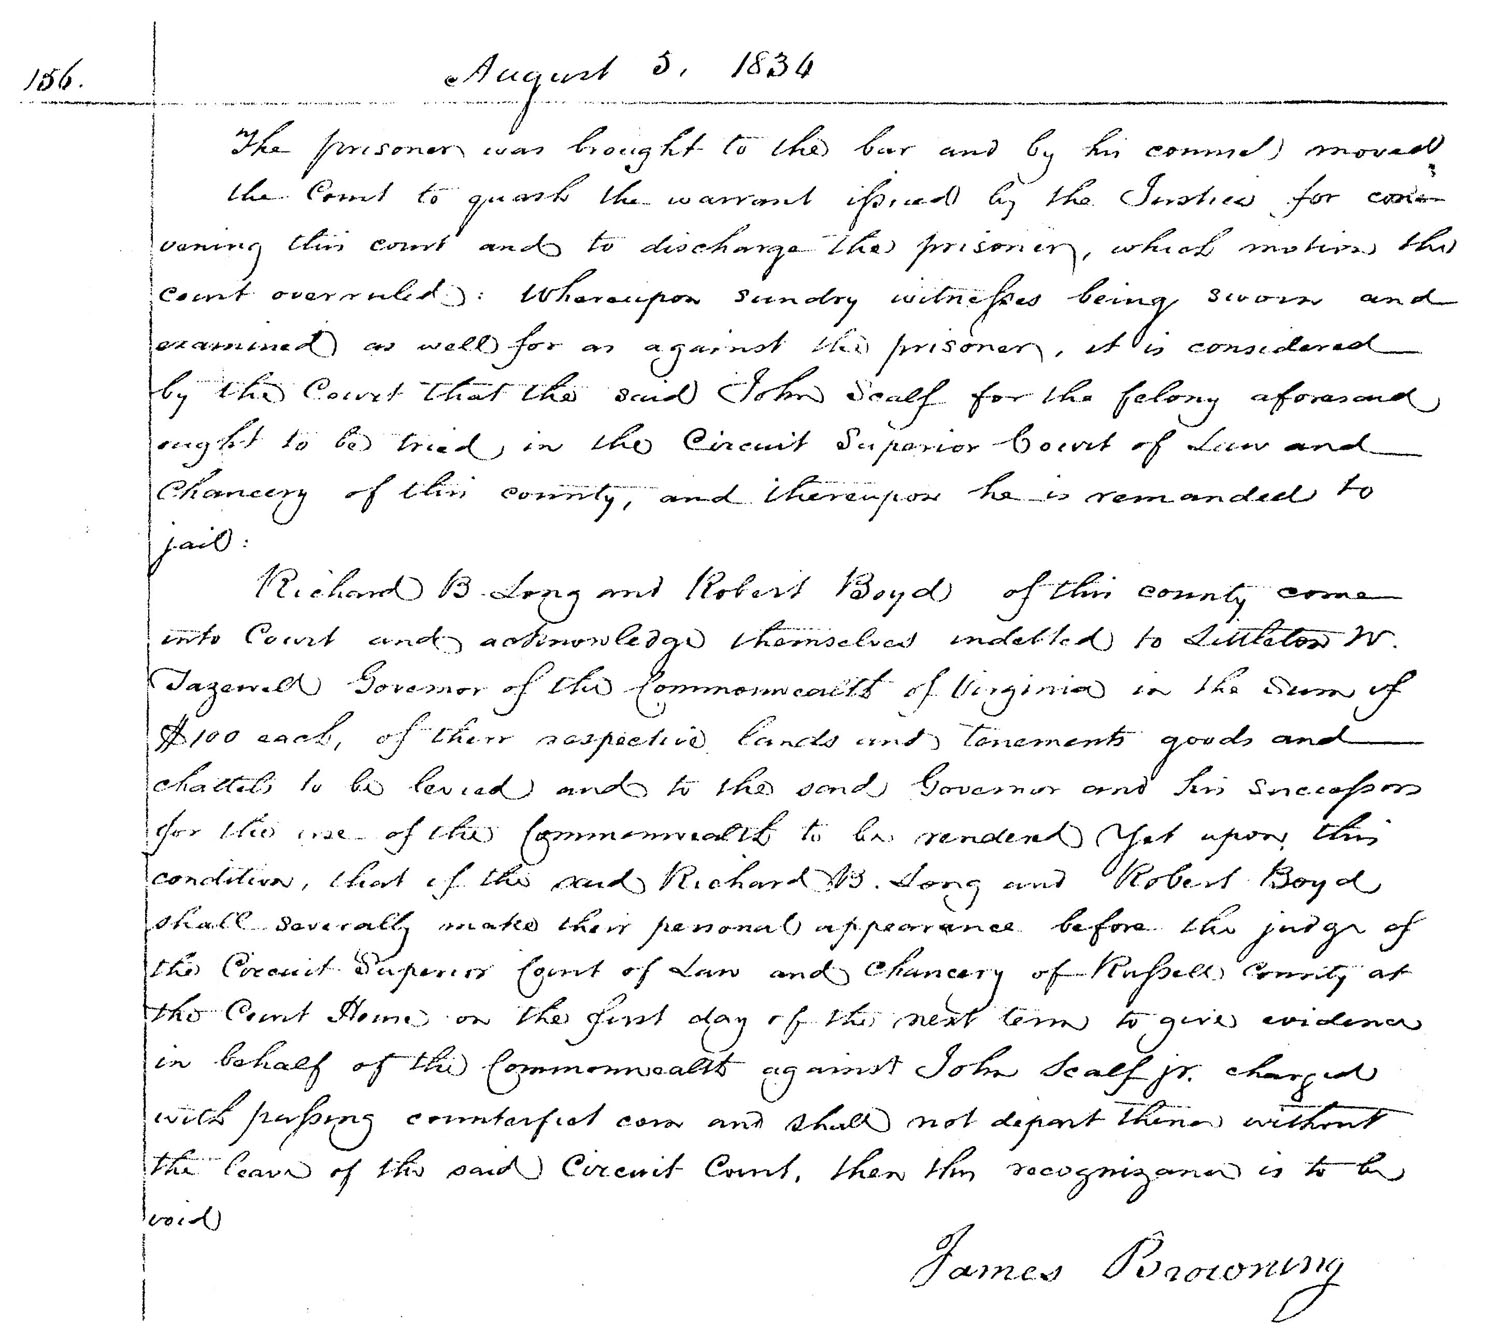 156.
August 5, 1834
The prisoner was brought to the bar and by his counsel moved
the Court to quash the warrant issued by the Justice for con-
vening this court and to discharge the prisoner, which motion the
court overruled: Whereupon sundry witnesses being sworn and
examined as well for as against the prisoner, it is considered
by the Court that the said John Scalf for the felony aforesaid
ought to be tried in the Circuit Superior Court of Law and
Chancery of this county, and thereupon he is remanded to
jail:
Richard B. Long and Robert Boyd of this county come
into Court and acknowledge themselves indebted to Littleton W.
Tazewell Governor of the Commonwealth of Virginia in the Sum of
$100 each, of their respective lands and tenements goods and
chattels to be levied and to the said Governor and his successors
for the use of the Commonwealth to be rendered Yet upon this
condition, that if the said Richard B. Long and Robert Boyd
shall severally make their personal appearance before the judge of
the Circuit Superior Court of Law and Chancery of Russell County at
the Court House on the first day of the next term to give evidence
in behalf of the Commonwealth against John Scalf jr. charged
with passing counterfeit coin and shall not depart thence without
the leave of the said Circuit Court, then this recognizance is to be
void
James Browning